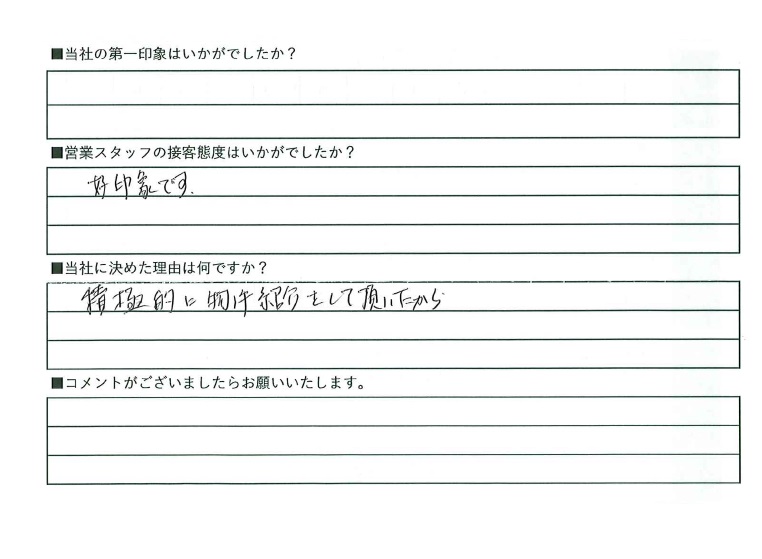 ■当社の第一印象はいかがでしたか？
■営業スタッフの接客態度はいかがでしたか？
好印象です.
■当社に決めた理由は何ですか？
積極的に物件紹介をして頂いたから
■コメントがございましたらお願いいたします。